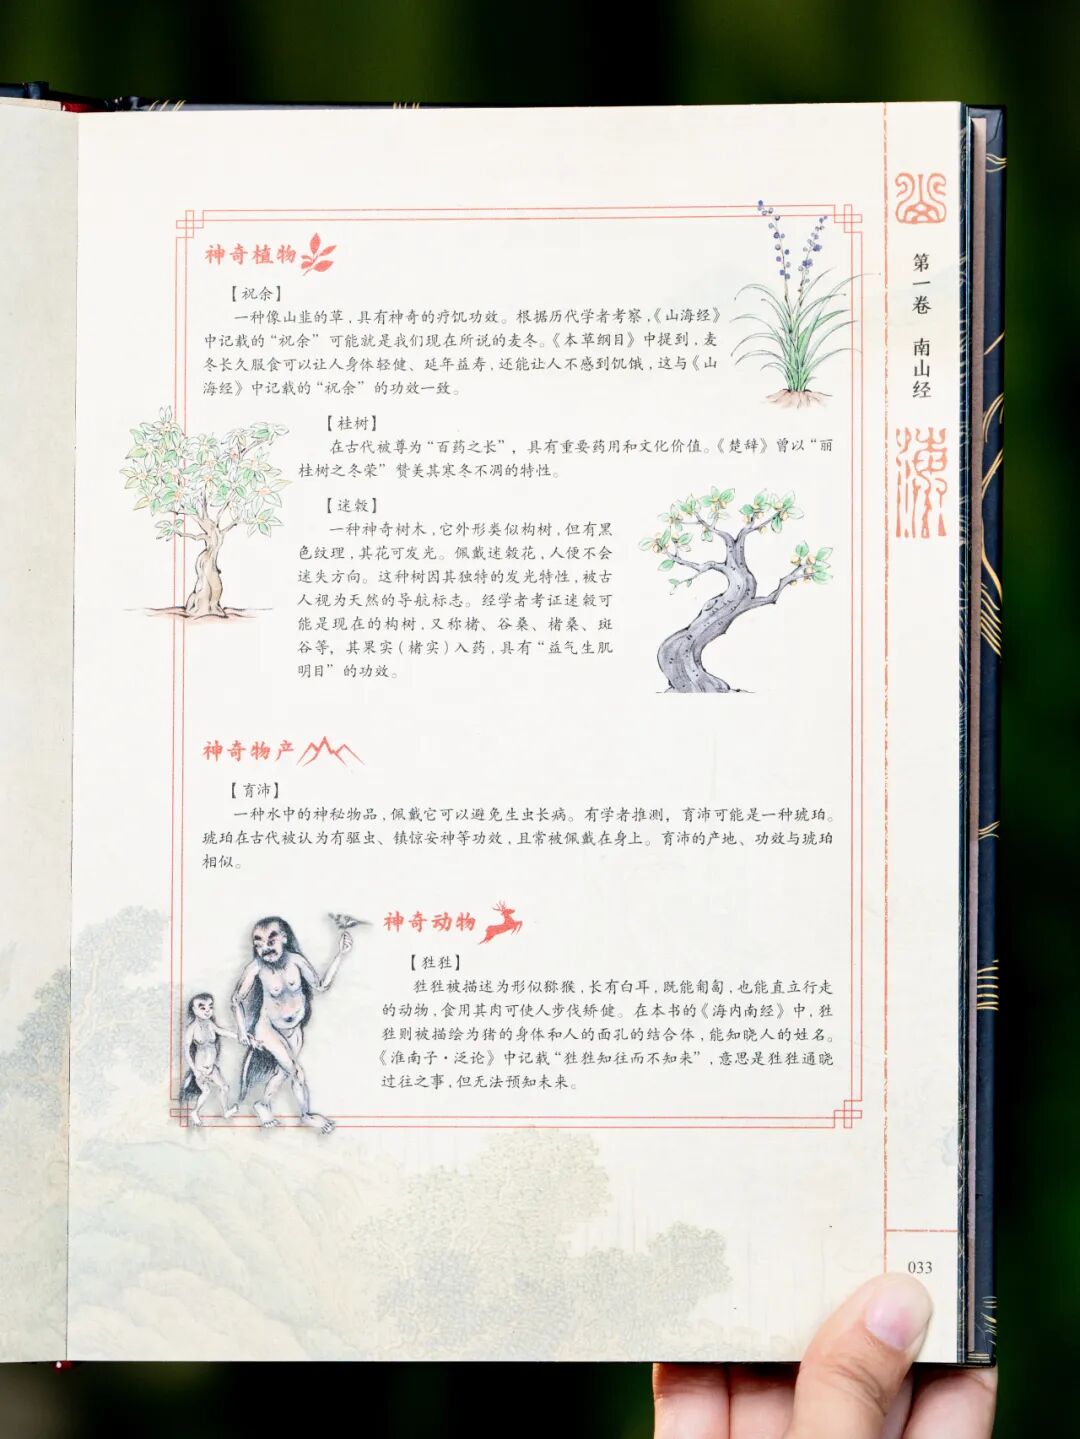 神奇植物
【祝余】
一种像山韭的草，具有神奇的疗饥功效。根据历代学者考察，《山海经》
中记载的“祝余”可能就是我们现在所说的麦冬。《本草纲目》中提到，麦
冬长久服食可以让人身体轻健、延年益寿，还能让人不感到饥饿，这与《山
海经》中记载的“祝余”的功效一致。
【桂树】
在古代被尊为“百药之长”，具有重要药用和文化价值。《楚辞》曾以“丽
桂树之冬荣”赞美其寒冬不凋的特性。
【迷榖】
一种神奇树木，它外形类似构树，但有黑
色纹理，其花可发光。佩戴迷榖花，人便不会
迷失方向。这种树因其独特的发光特性，被古
人视为天然的导航标志。经学者考证迷榖可
能是现在的构树，又称楮、谷桑、楮桑、斑
谷等，其果实（楮实）入药，具有“益气生肌
明目”的功效。
神奇物产
【育沛】
一种水中的神秘物品，佩戴它可以避免生虫长病。有学者推测，育沛可能是一种琥珀。
琥珀在古代被认为有驱虫、镇惊安神等功效，且常被佩戴在身上。育沛的产地、功效与琥珀
相似。
神奇动物
【狌狌】
狌狌被描述为形似猕猴，长有白耳，既能匍匐，也能直立行走
的动物，食用其肉可使人步伐矫健。在本书的《海内南经》中，狌
狌则被描绘为猪的身体和人的面孔的结合体，能知晓人的姓名。
《淮南子·泛论》中记载“狌狌知往而不知来”，意思是狌狌通晓
过往之事，但无法预知未来。
山
第一卷 南山经
海
033